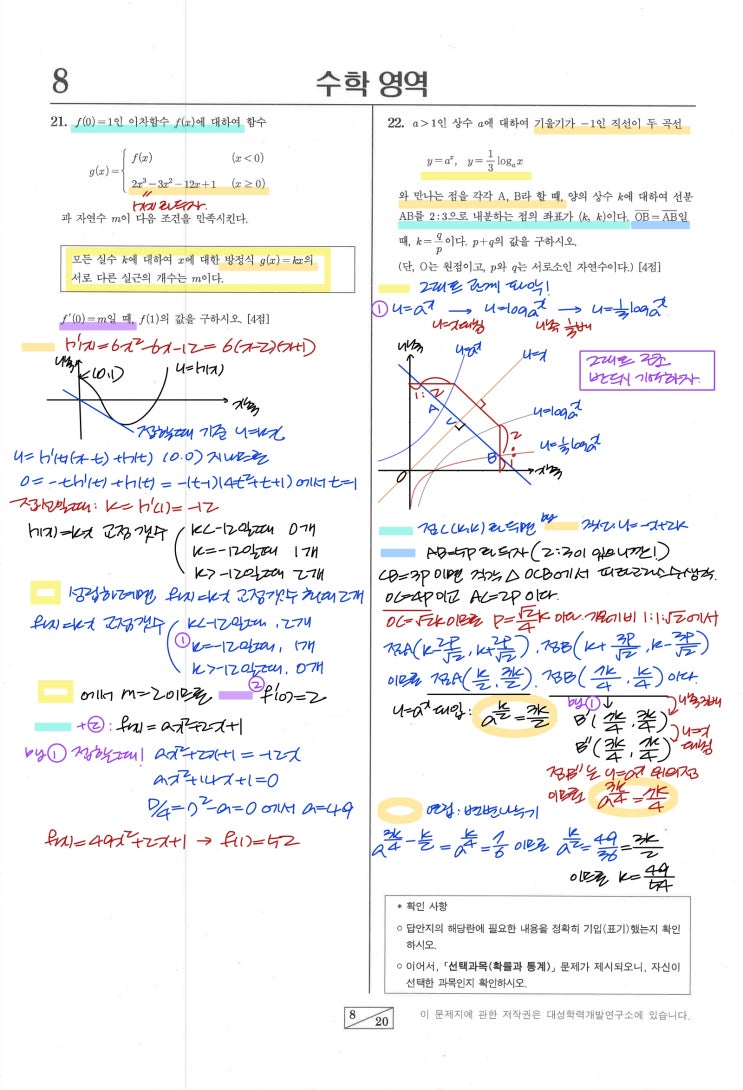 8
수학 영역
21. f(0)=1인 이차함수 f(x)에 대하여 함수
g(x)={ f(x) (x<0)
2x³-3x²-12x+1 (x≥0)
과 자연수 m이 다음 조건을 만족시킨다.
모든 실수 k에 대하여 x에 대한 방정식 g(x)=kx의
서로 다른 실근의 개수는 m이다.
f'(0)=m일 때, f(1)의 값을 구하시오. [4점]
h'(x)=6x²-6x-12=6(x-2)(x+1)
y축
(0,1)
y=h(x)
x축
접할때 기준 y=kx
y=h'(t)(x-t)+h(t) (0,0) 지나므로
0=-th'(t)+h(t)=-(t-1)(4t²+t+1)에서 t=1
k=h'(1)=-12
h(x)=kx 교점 갯수
k<-12일때 0개
k=-12일때 1개
k>-12일때 2개
f(x)=kx 교점갯수
①
k<-12일때, 2개
k=-12일때, 1개
k>-12일때, 0개
에서 m=2이므로 ② f'(0)=2
+②: f(x)=ax²+2x+1
by ① 접할때! ax²+2x+1=-12x
ax²+14x+1=0
D/4=7²-a=0에서 a=49
f(x)=49x²+2x+1 → f(1)=52
22. a>1인 상수 a에 대하여 기울기가 -1인 직선이 두 곡선
y=aˣ, y=1/3 logₐx
와 만나는 점을 각각 A, B라 할 때, 양의 상수 k에 대하여 선분
AB를 2:3으로 내분하는 점의 좌표가 (k, k)이다. OB=AB일
때, k=q/p이다. p+q의 값을 구하시오.
(단, O는 원점이고, p와 q는 서로소인 자연수이다.) [4점]
그래프 관계 파악!
① y=aˣ → y=logₐx → y=1/3 logₐx
y=x대칭
y축 1/3배
y축
y=aˣ
y=x
그래프 구조
반드시 기억하자.
1:2
A
C
y=logₐx
2
y=1/3 logₐx
B
O
x축
점C(k,k)라 두면 by 직선: y=-x+2k
AB=5P라 두자 (2:3이 있으니깐!)
CB=3P이면 직각△OCB에서 피타고라스 수 생각.
OC=4P이고 AC=2P이다.
OC=√2k이므로 P=√2/4 k이다. 기울기비 1:1:√2에서
점A(k-2P/√2, k+2P/√2), 점B(k+3P/√2, k-3P/√2)
이므로 점A(k/2, 3k/2), 점B(7k/4, k/4)이다.
y=aˣ대입: a^(k/2)=3k/2
by ①
B'(7k/4, 3k/4)
y축 3배
B''(3k/4, 7k/4)
y=x대칭
점B''는 y=aˣ 위의 점
이므로 a^(3k/4)=7k/4
연립: 변변 나누기
a^(3k/4-k/2)=a^(k/4)=7/6 이므로 a^(k/2)=49/36=3k/2
이므로 k=49/54
* 확인 사항
○ 답안지의 해당란에 필요한 내용을 정확히 기입(표기)했는지 확인
하시오.
○ 이어서, 「선택과목(확률과 통계)」 문제가 제시되오니, 자신이
선택한 과목인지 확인하시오.
8
20
이 문제지에 관한 저작권은 대성학력개발연구소에 있습니다.